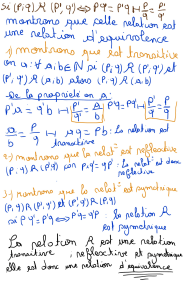 si (P,q) R (P',q') ⇔ Pq' = P'q ↦ P/q = P'/q'
montrons que celle relation est
une relation d'équivalence
1) montrons que est transitive
on a : ∀ a,b ∈ N si (P,q) R (P',q') et
(P',q') R (a,b) alors (P,q) R (a,b)
De la propriété on a :
P'a = q'b ↦ P'/q' = A/b Pq' = P'q ↦ P'/q' = P/q
a/b = P/q ↦ aq = Pb : la relation est
transitive
2) montrons que la relat° est reflective
(P,q) R (P,q) car P.q = qP : la relat° est donc
reflective
3) montrons que la relat° est symetrique
(P,q) R (P',q') et (P',q') R (P,q)
si Pq' = P'q ⇔ P'q = Pq' : la relation R
est symetrique
La relation R est une relation
transitive, reflective et symetrique
elle est donc une relation d'equivalence